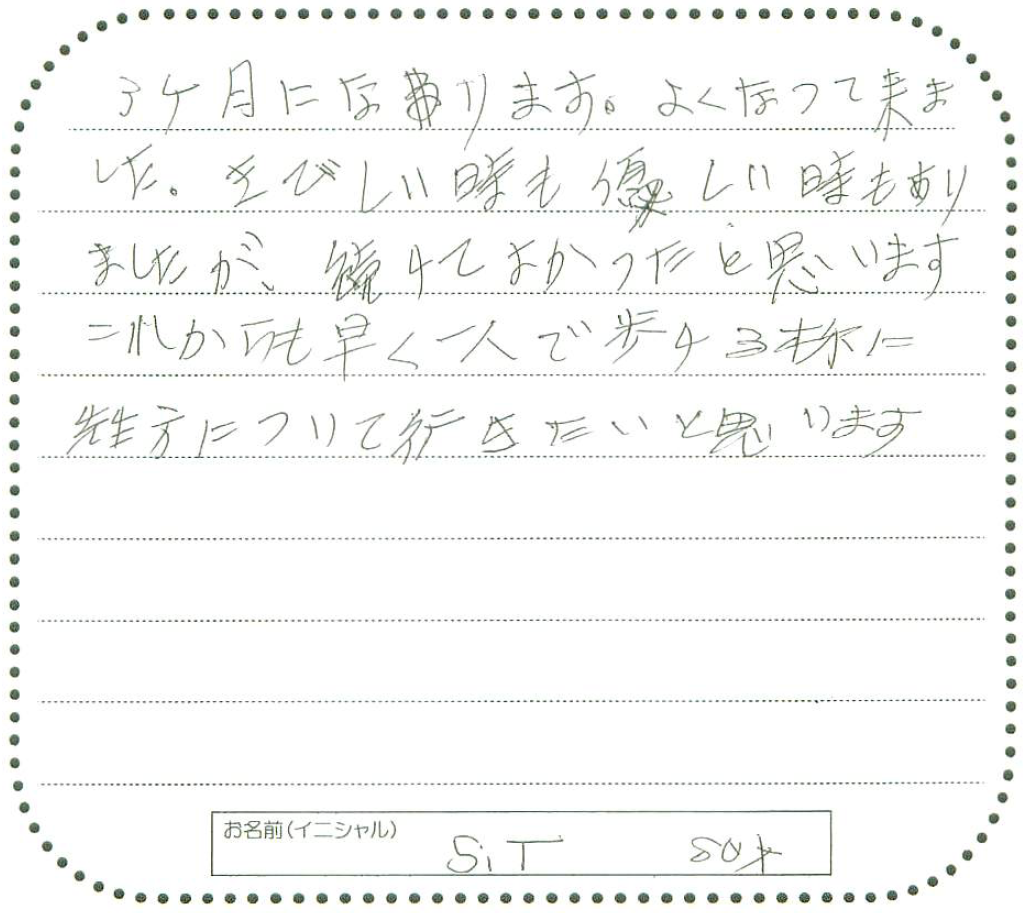 3ケ月になります。よくなって来ま
した。きびしい時も優しい時もあり
ましたが、続けてよかったと思います
これからも早く一人で歩ける様に
先生方について行きたいと思います
お名前(イニシャル)
S.T 80才